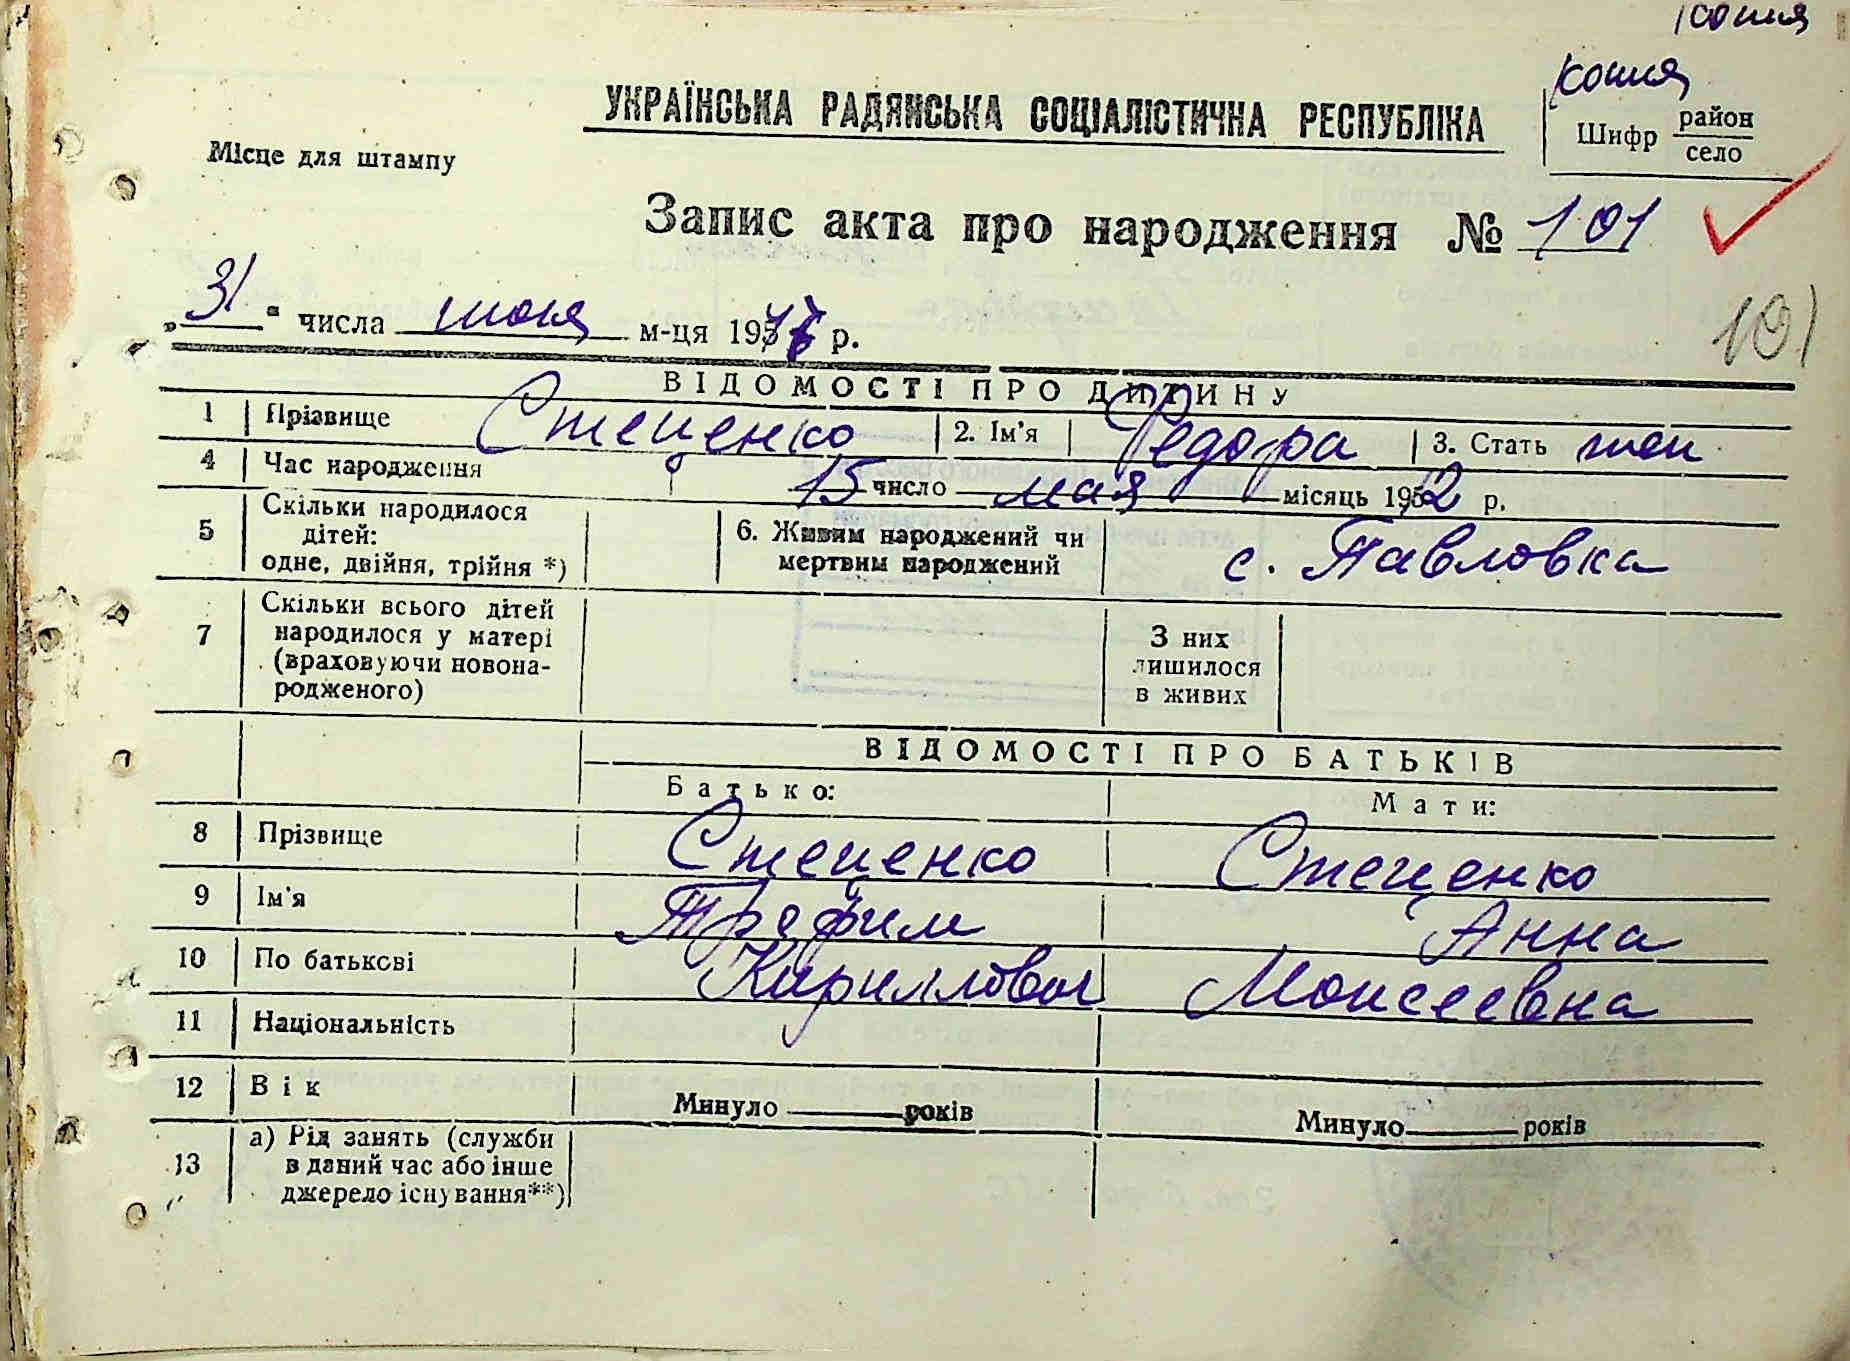 копия
копия
УКРАЇНСЬКА РАДЯНСЬКА СОЦІАЛІСТИЧНА РЕСПУБЛІКА
Шифр район
село
Місце для штампу
Запис акта про народження № 101
101
„31" числа июля м-ця 19 р.
ВІДОМОСТІ ПРО ДИТИНУ
1 Прізвище Стеценко 2. Ім'я Федора 3. Стать жен
4 Час народження 15 число мая місяць 1952 р.
5 Скільки народилося дітей: одне, двійня, трійня *) 6. Живим народжений чи мертвим народжений с. Павловка
7 Скільки всього дітей народилося у матері (враховуючи новонародженого) З них лишилося в живих
ВІДОМОСТІ ПРО БАТЬКІВ
Батько: Мати:
8 Прізвище Стеценко Стеценко
9 Ім'я Трофим Анна
10 По батькові Кириллович Моисеевна
11 Національність
12 Вік Минуло років Минуло років
13 а) Рід занять (служби в даний час або інше джерело існування**)